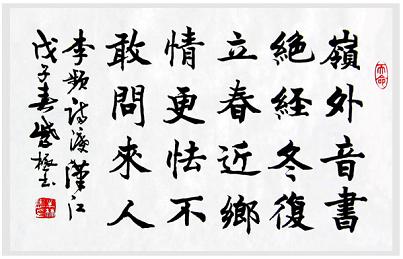 嶺外音書
絕經冬復
立春近鄉
情更怯不
敢問來人
李頻詩渡漢江
戊子春